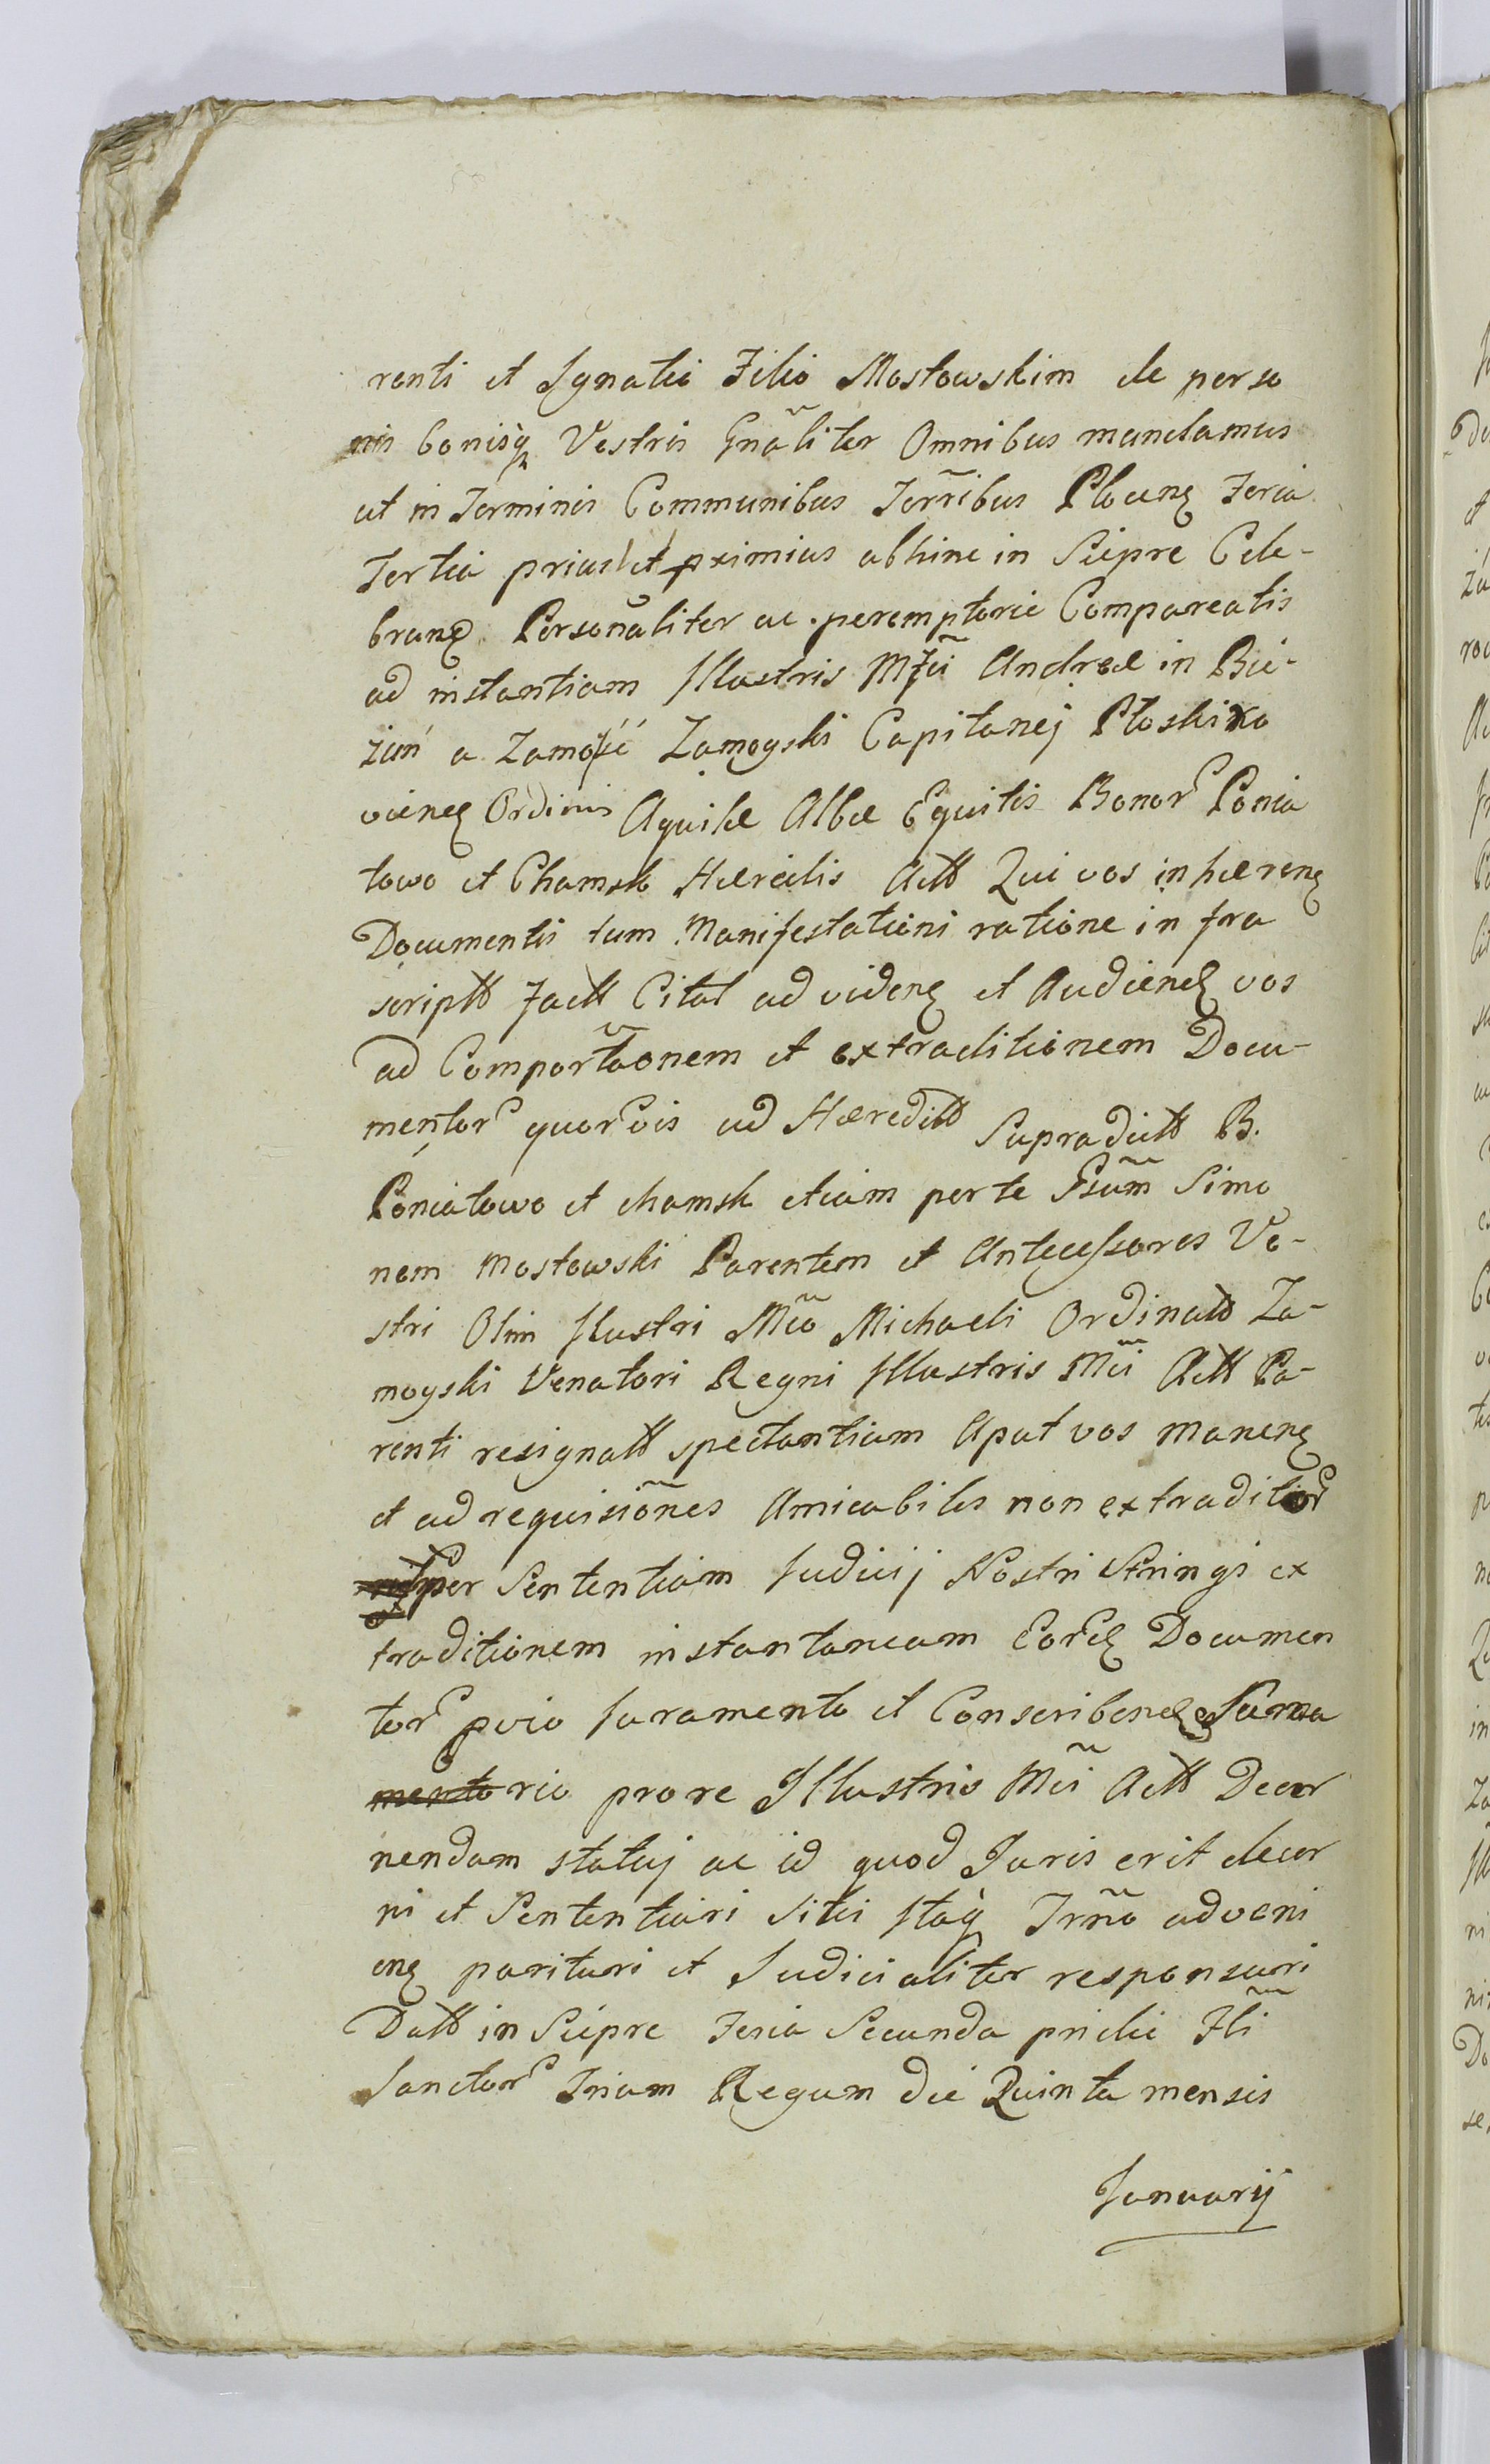 renti et Ignatio Filio Mostowskim de perso
nis bonisq Vestris Gnãliter Omnibus mandamus
ut in Terminis Communibus Terr̃ibus Plocens Feria
Tertia prius et prximius abhinc in Siepre Cele-
brans Personãliter ac peremptorie Compareatis
ad instantiam Illustris Mfci Andreæ in Bie-
zuń a Zamość Zamoyski Capitanej Płoski
viens Ordinis Aquilæ Albæ Equitis Bonor Ponia
towo et Chamsk Hæredis Actt Qui vos inhærens
Documentis tum Manifestationi ratione infra
scriptt Factt Citat ad videns et Audiend vos
ad Comportãonem et extraditionem Docu-
mentor quorvis ad Hæreditt Supradictt B.
Poniatowo et chamsk etiam per te Gsum̃ Simo
nem Mostowski Parentem et Antecessores Ve-
stri Olim Ilustri Mcõ Michaeli Ordinatt Za-
moyski Venatori Regni Illustris Mci̇̃ Actt Pa-
renti resignatt spectantium Aput vos manens
et ad requisiõnes Amicabiles non extraditor
per Sententiam Judicij Nostri Stringi ex
traditionem instantaneam Eord Documen
tor pvio Juramento et Conscribend Juma
mentorio pro re Illustris Mcĩ Actt Decer
nendam statuj ac id quod Juris erit decer
ni et Sententiari Sitis Itaq Trñõ adveni
ens parituri et Judicialiter responsuri
Datt in Siepre Feria Secunda pridie Fti̇̃
Sanctor Trium Regum die Quinta mensis
Januarij